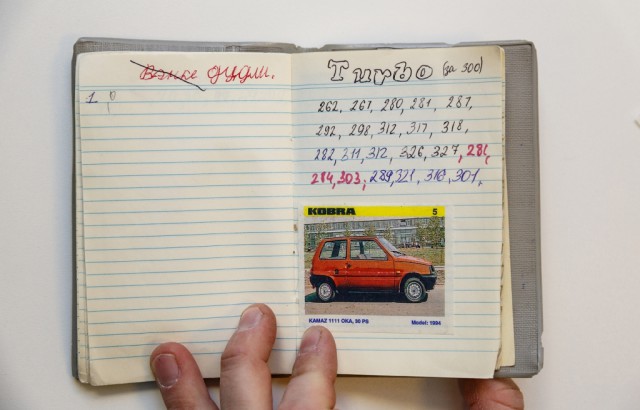 дубли.
1
Turbo (за 300)
262, 267, 280, 281, 287,
292, 298, 312, 317, 318,
282, 311, 312, 326, 327, 281,
284, 303, 289, 321, 316, 301,
KOBRA 5
KAMAZ 1111 OKA, 30 PS Model: 1994